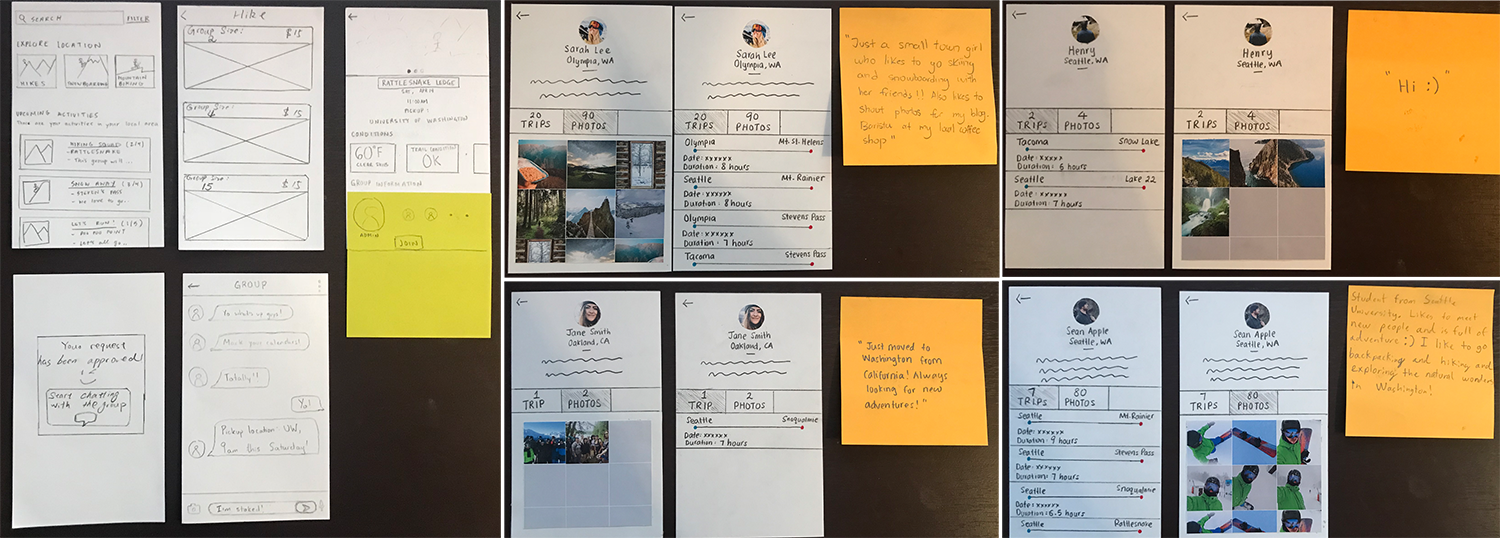 SEARCH
FILTER
EXPLORE LOCATION
HIKES
SNOWBOARDING
MOUNTAIN
BIKING
UPCOMING ACTIVITIES
These are your activities in your local area
HIKING SQUAD (2/4)
- RATTLESNAKE
- This group will...
- STEVEN'S PASS
- We love to go...
LET'S RUN! (1/5)
- Let's all go...
Hike
Group Size:
2
$15
Group Size:
4
$15
Group Size:
15
$15
RATTLESNAKE LEDGE
11:30AM
PICKUP:
UNIVERSITY OF WASHINGTON
CONDITIONS
60°F
CLEAR SKIES
TRAIL CONDITION
OK
GROUP INFORMATION
ADMIN
JOIN
Your request
has been approved!
Start chatting
with the group
GROUP
Yo what's up guys!
Mark your calendars!
Totally!!
Yo!
Pickup location: UW,
9am this Saturday!
I'm stoked!
Sarah Lee
Olympia, WA
20
TRIPS
90
PHOTOS
Sarah Lee
Olympia, WA
20
TRIPS
90
PHOTOS
Olympia
Mt. St. Helens
Date: xxxxxx
Duration: 8 hours
Seattle
Mt. Rainier
Date: xxxxxx
Duration: 8 hours
Olympia
Stevens Pass
Date: xxxxxx
Duration: 7 hours
Tacoma
Stevens Pass
"Just a small town girl
who likes to go skiing
and snowboarding with
her friends!! Also likes to
shoot photos for my blog.
Barista at my local coffee
shop"
Henry
Seattle, WA
2
TRIPS
4
PHOTOS
Tacoma
Snow Lake
Date: xxxxx
Duration: 6 hours
Seattle
Lake 22
Date: xxxxxx
Duration: 7 hours
Henry
Seattle, WA
2
TRIPS
4
PHOTOS
"Hi :)"
Jane Smith
Oakland, CA
1
TRIP
2
PHOTOS
Jane Smith
Oakland, CA
1
TRIP
2
PHOTOS
Seattle
Snoqualmie
Date: xxxxxx
Duration: 7 hours
"Just moved to
Washington from
California! Always
looking for new
adventures!"
Sean Apple
Seattle, WA
7
TRIPS
80
PHOTOS
Seattle
Mt. Rainier
Date: xxxxxx
Duration: 9 hours
Seattle
Stevens Pass
Date: xxxxxx
Duration: 7 hours
Seattle
Snoqualmie
Date: xxxxxx
Duration: 6.5 hours
Seattle
Rattlesnake
Sean Apple
Seattle, WA
7
TRIPS
80
PHOTOS
Student from Seattle
University. Likes to meet
new people and is full of
adventure :) I like to go
backpacking and hiking and
exploring the natural wonders
in Washington!